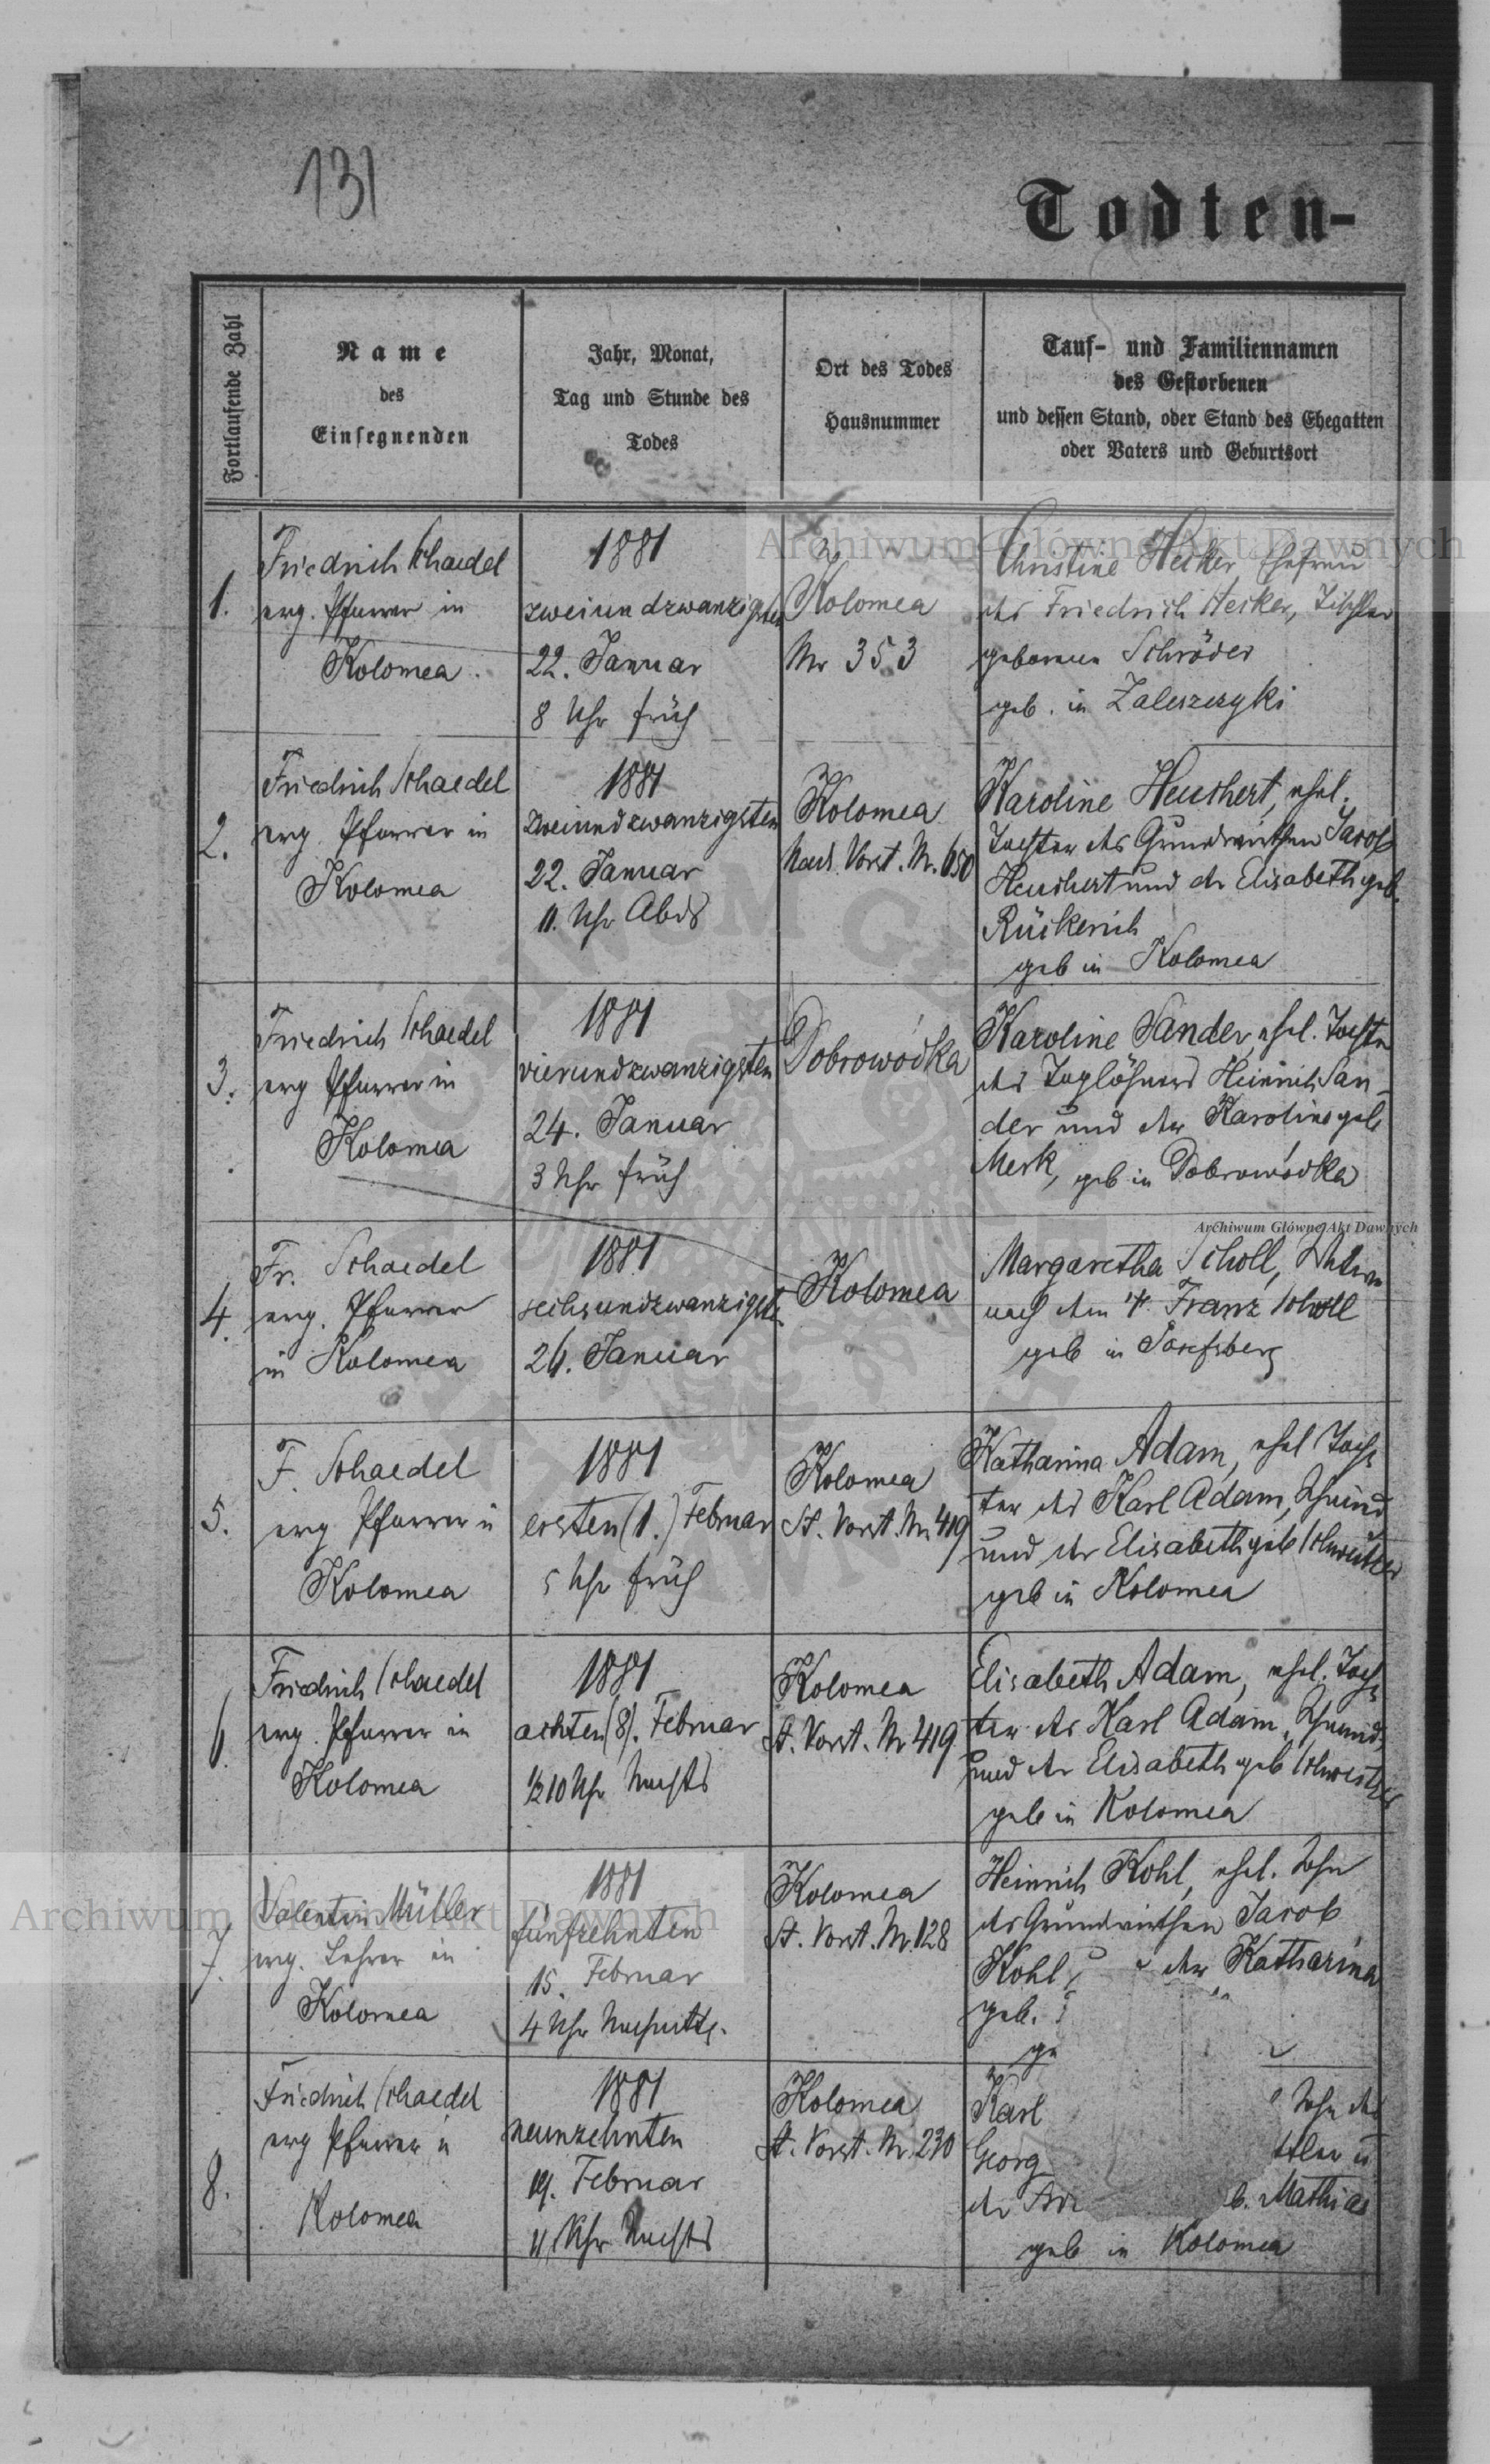 131
Todten-
Fortlaufende Zahl
Name
des
Einsegnenden
Jahr, Monat,
Tag und Stunde des
Todes
Ort des Todes
Hausnummer
Tauf- und Familiennamen
des Gestorbenen
und dessen Stand, oder Stand des Ehegatten
oder Vaters und Geburtsort
1.
Friedrich Schaedel
evg. Pfarrer in
Kolomea
1881
zweiundzwanzigsten
22. Januar
8 Uhr früh
Kolomea
Nr 353
Christine Hecker, Ehefrau
des Friedrich Hecker, Tischler
geborene Schröder
geb. in Zaleszczyki
2.
Friedrich Schaedel
evg. Pfarrer in
Kolomea
1881
zweiundzwanzigsten
22. Januar
11. Uhr Abds
Kolomea
Nad. Vorst. Nr. 650
Karoline Heuchert, ehel.
Tochter des Grundwirthen Jacob
Heuchert und der Elisabeth geb.
Rückerich
geb in Kolomea
3.
Friedrich Schaedel
evg Pfarrer in
Kolomea
1881
vierundzwanzigsten
24. Januar
3 Uhr früh
Dobrowódka
Karoline Sander, ehel. Tochter
des Taglöhners Heinrich San-
der und der Karoline geb
Merk, geb in Dobrowódka
4.
Fr. Schaedel
evg. Pfarrer
in Kolomea
1881
sechsundzwanzigsten
26. Januar
Kolomea
Margaretha Scholl, Witwe
nach dem † Franz Scholl
geb in Josefsberg
5.
F. Schaedel
evg Pfarrer in
Kolomea
1881
ersten (1.) Februar
5 Uhr früh
Kolomea
St. Vorst. Nr. 419
Katharina Adam, ehel Toch-
ter des Karl Adam, Schmied
und der Elisabeth geb Schweitzer
geb in Kolomea
6.
Friedrich Schaedel
evg. Pfarrer in
Kolomea
1881
achten (8). Februar
½10 Uhr Nachts
Kolomea
St. Vorst. Nr 419
Elisabeth Adam, ehel. Toch-
ter des Karl Adam, Schmied,
und der Elisabeth geb Schweitzer
geb in Kolomea
7.
Valentin Müller
evg. Lehrer in
Kolomea
1881
fünfzehnten
15. Februar
4 Uhr Nachmittg.
Kolomea
St. Vorst. Nr. 128
Heinrich Kohl, ehel. Sohn
des Grundwirthen Jacob
Kohl, der Katharina
geb.
8.
Friedrich Schaedel
evg Pfarrer in
Kolomea
1881
neunzehnten
19. Februar
11 Uhr Nachts
Kolomea
St. Vorst. Nr. 230
Karl Sohn des
Georg
der b. Mathias
geb in Kolomea
Archiwum Główne Akt Dawnych
Archiwum Główne Akt Dawnych
Archiwum Główne Akt Dawnych